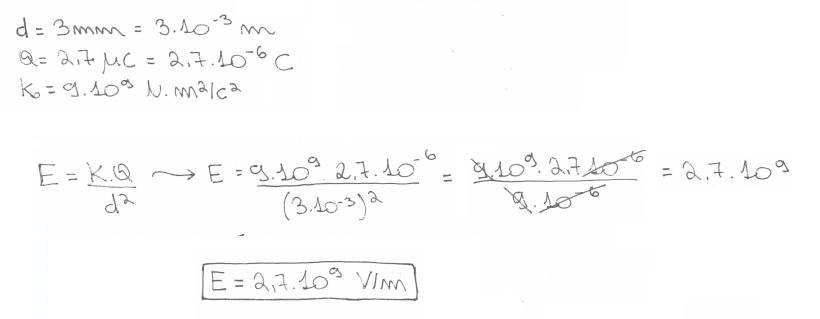 d = 3mm = 3.10⁻³ m
Q = 2,7 μC = 2,7.10⁻⁶ C
K₀ = 9.10⁹ N.m²/c²
E = K.Q/d² → E = 9.10⁹ 2,7.10⁻⁶/(3.10⁻³)² = 9.10⁹.2,7.10⁻⁶/9.10⁻⁶ = 2,7.10⁹
E = 2,7.10⁹ V/m